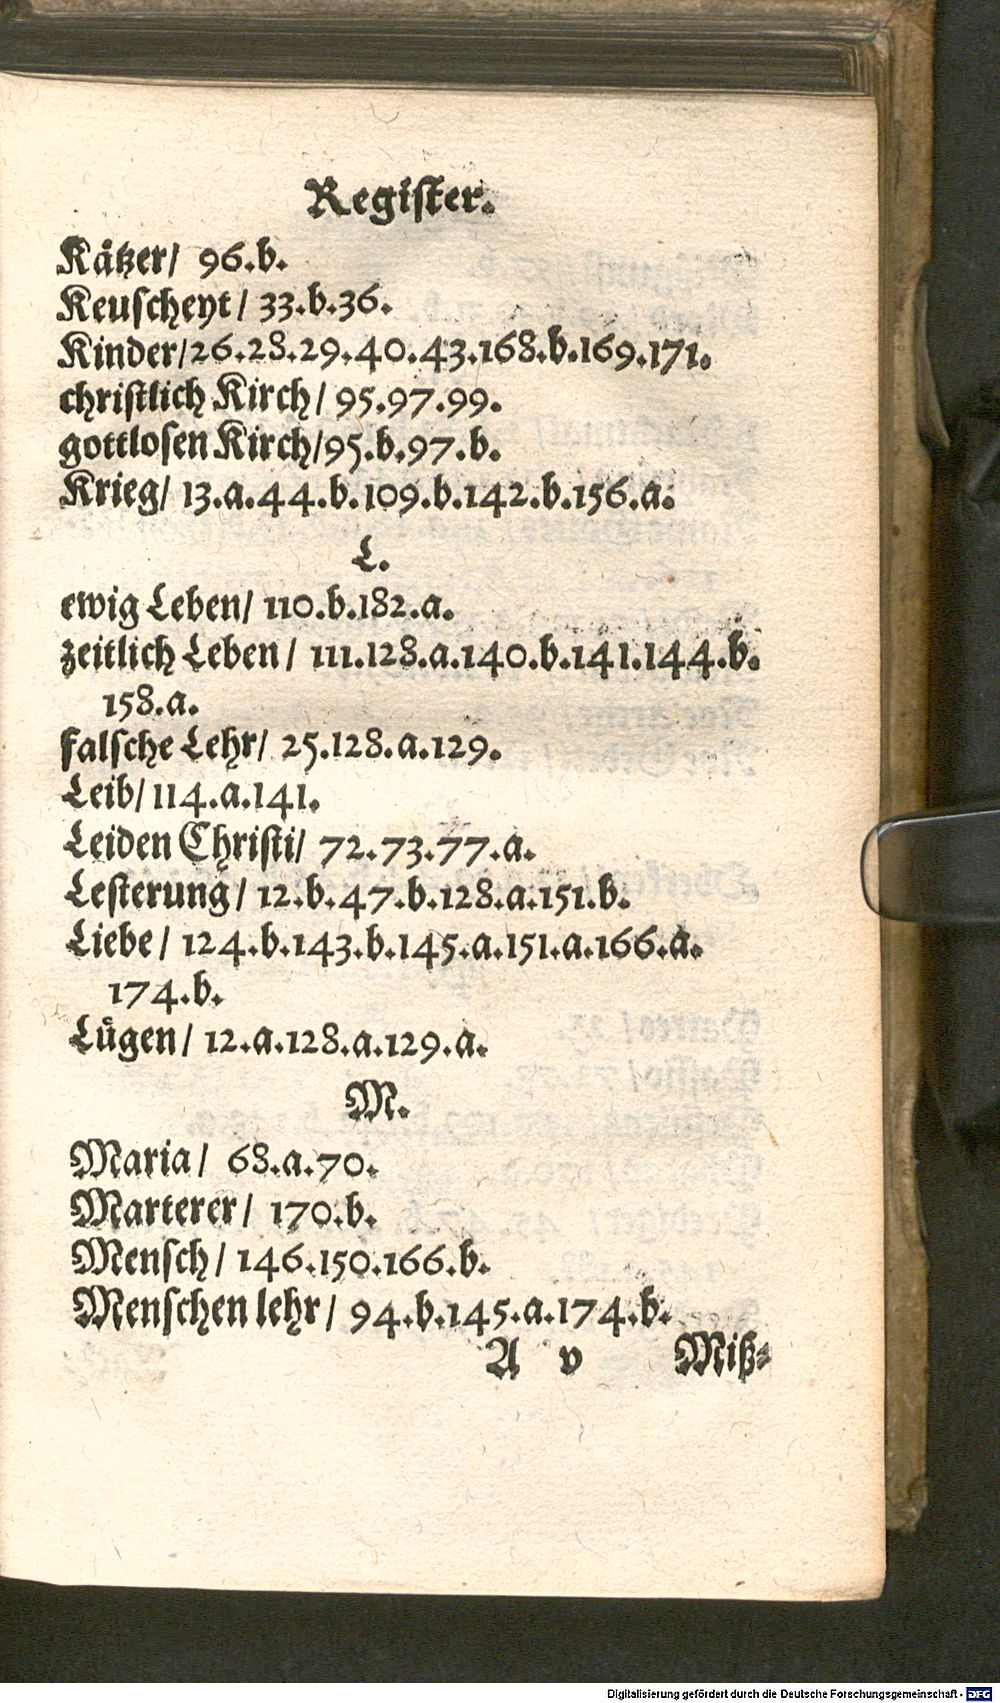 Register.
Kåtzer/ 96.b.
Keuscheyt/ 33.b.36.
Kinder/26.28.29.40.43.168.b.169.171.
christlich Kirch/ 95.97.99.
gottlosen Kirch/95.b.97.b.
Krieg/ 13.a.44.b.109.b.142.b.156.a.
L.
ewig Leben/ 110.b.182.a.
zeitlich Leben/ 111.128.a.140.b.141.144.b.
158.a.
falsche Lehr/ 25.128.a.129.
Leib/114.a.141.
Leiden Christi/ 72.73.77.a.
Lesterung/ 12.b.47.b.128.a.151.b.
Liebe/ 124.b.143.b.145.a.151.a.166.a.
174.b.
Lůgen/ 12.a.128.a.129.a.
M.
Maria/ 68.a.70.
Marterer/ 170.b.
Mensch/ 146.150.166.b.
Menschen lehr/ 94.b.145.a.174.b.
A v Miß⸗
Digitalisierung gefördert durch die Deutsche Forschungsgemeinschaft - DFG